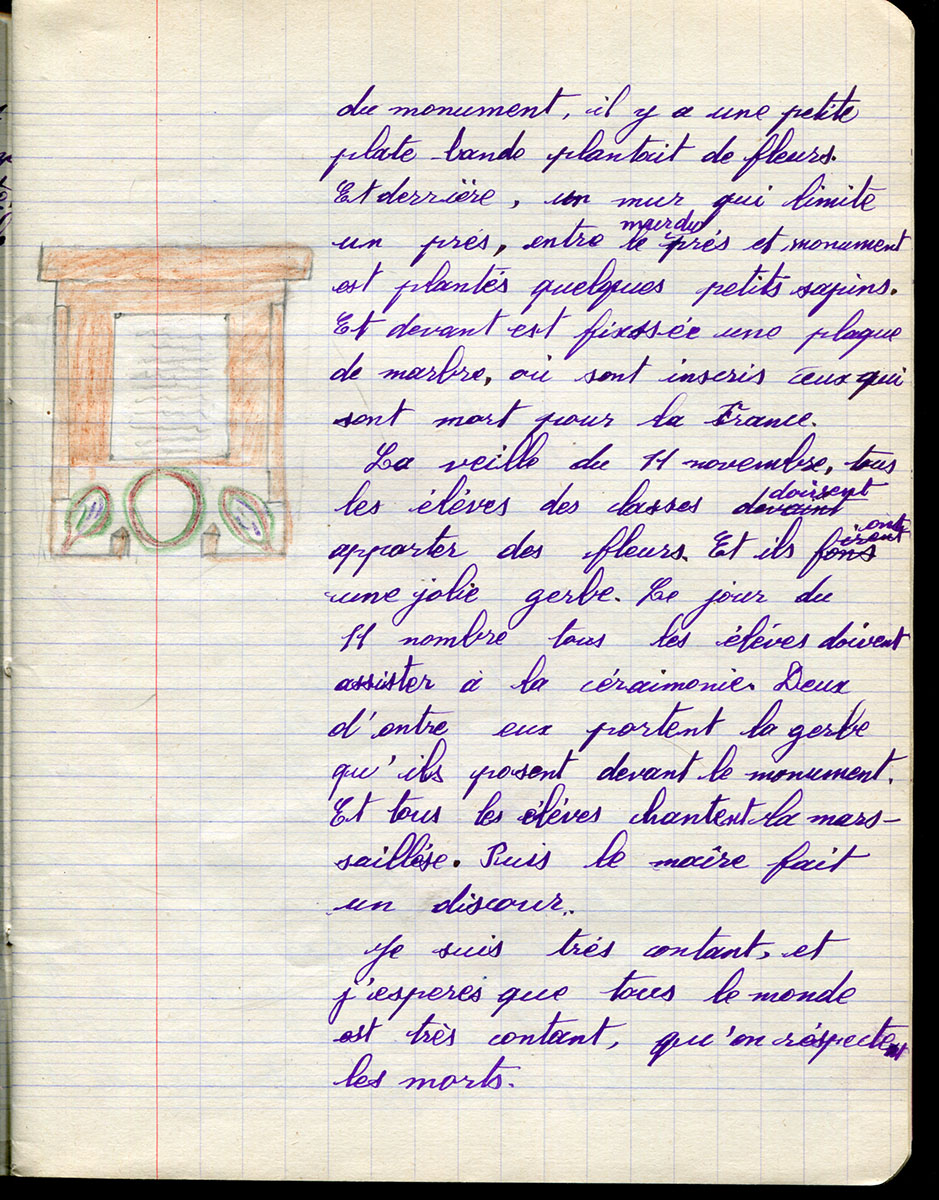 du monument, il y a une petite
plate-bande plantait de fleurs.
Et derrière, un mur qui limite
mur du
un prés, entre le prés et monument
est plantés quelques petits sapins.
Et devant est fixssée une plaque
de marbre, où sont inscris ceux qui
sont mort pour la France.
La veille du 11 novembre, tous
doissent
les éléves des classes devaint
ont
iront
apporter des fleurs. Et ils fons
une jolie gerbe. Le jour du
11 nombre tous les éléves doivent
assister à la céraimonie. Deux
d'entre eux portent la gerbe
qu'ils posent devant le monument.
Et tous les éléves chantent la mars-
saillése. Puis le maîre fait
un discour.
Je suis trés contant, et
j'esperes que tous le monde
est très contant, qu'on réspectent
les morts.